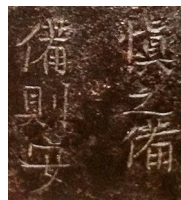 慎之備
備則安